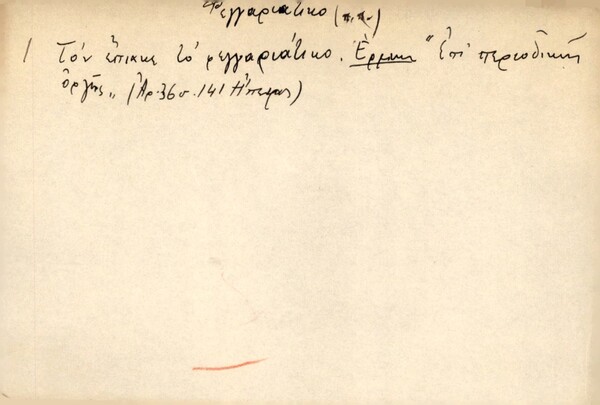 φεγγαριάτικο (π.π.)
1 Τόν ἔπιακε τό φεγγαριάτικο. Ἑρμην. "Ἐπί περιοδικῆς
ὀργῆς„ (Ἀρ. 36 σ. 141 Ἤπειρος)